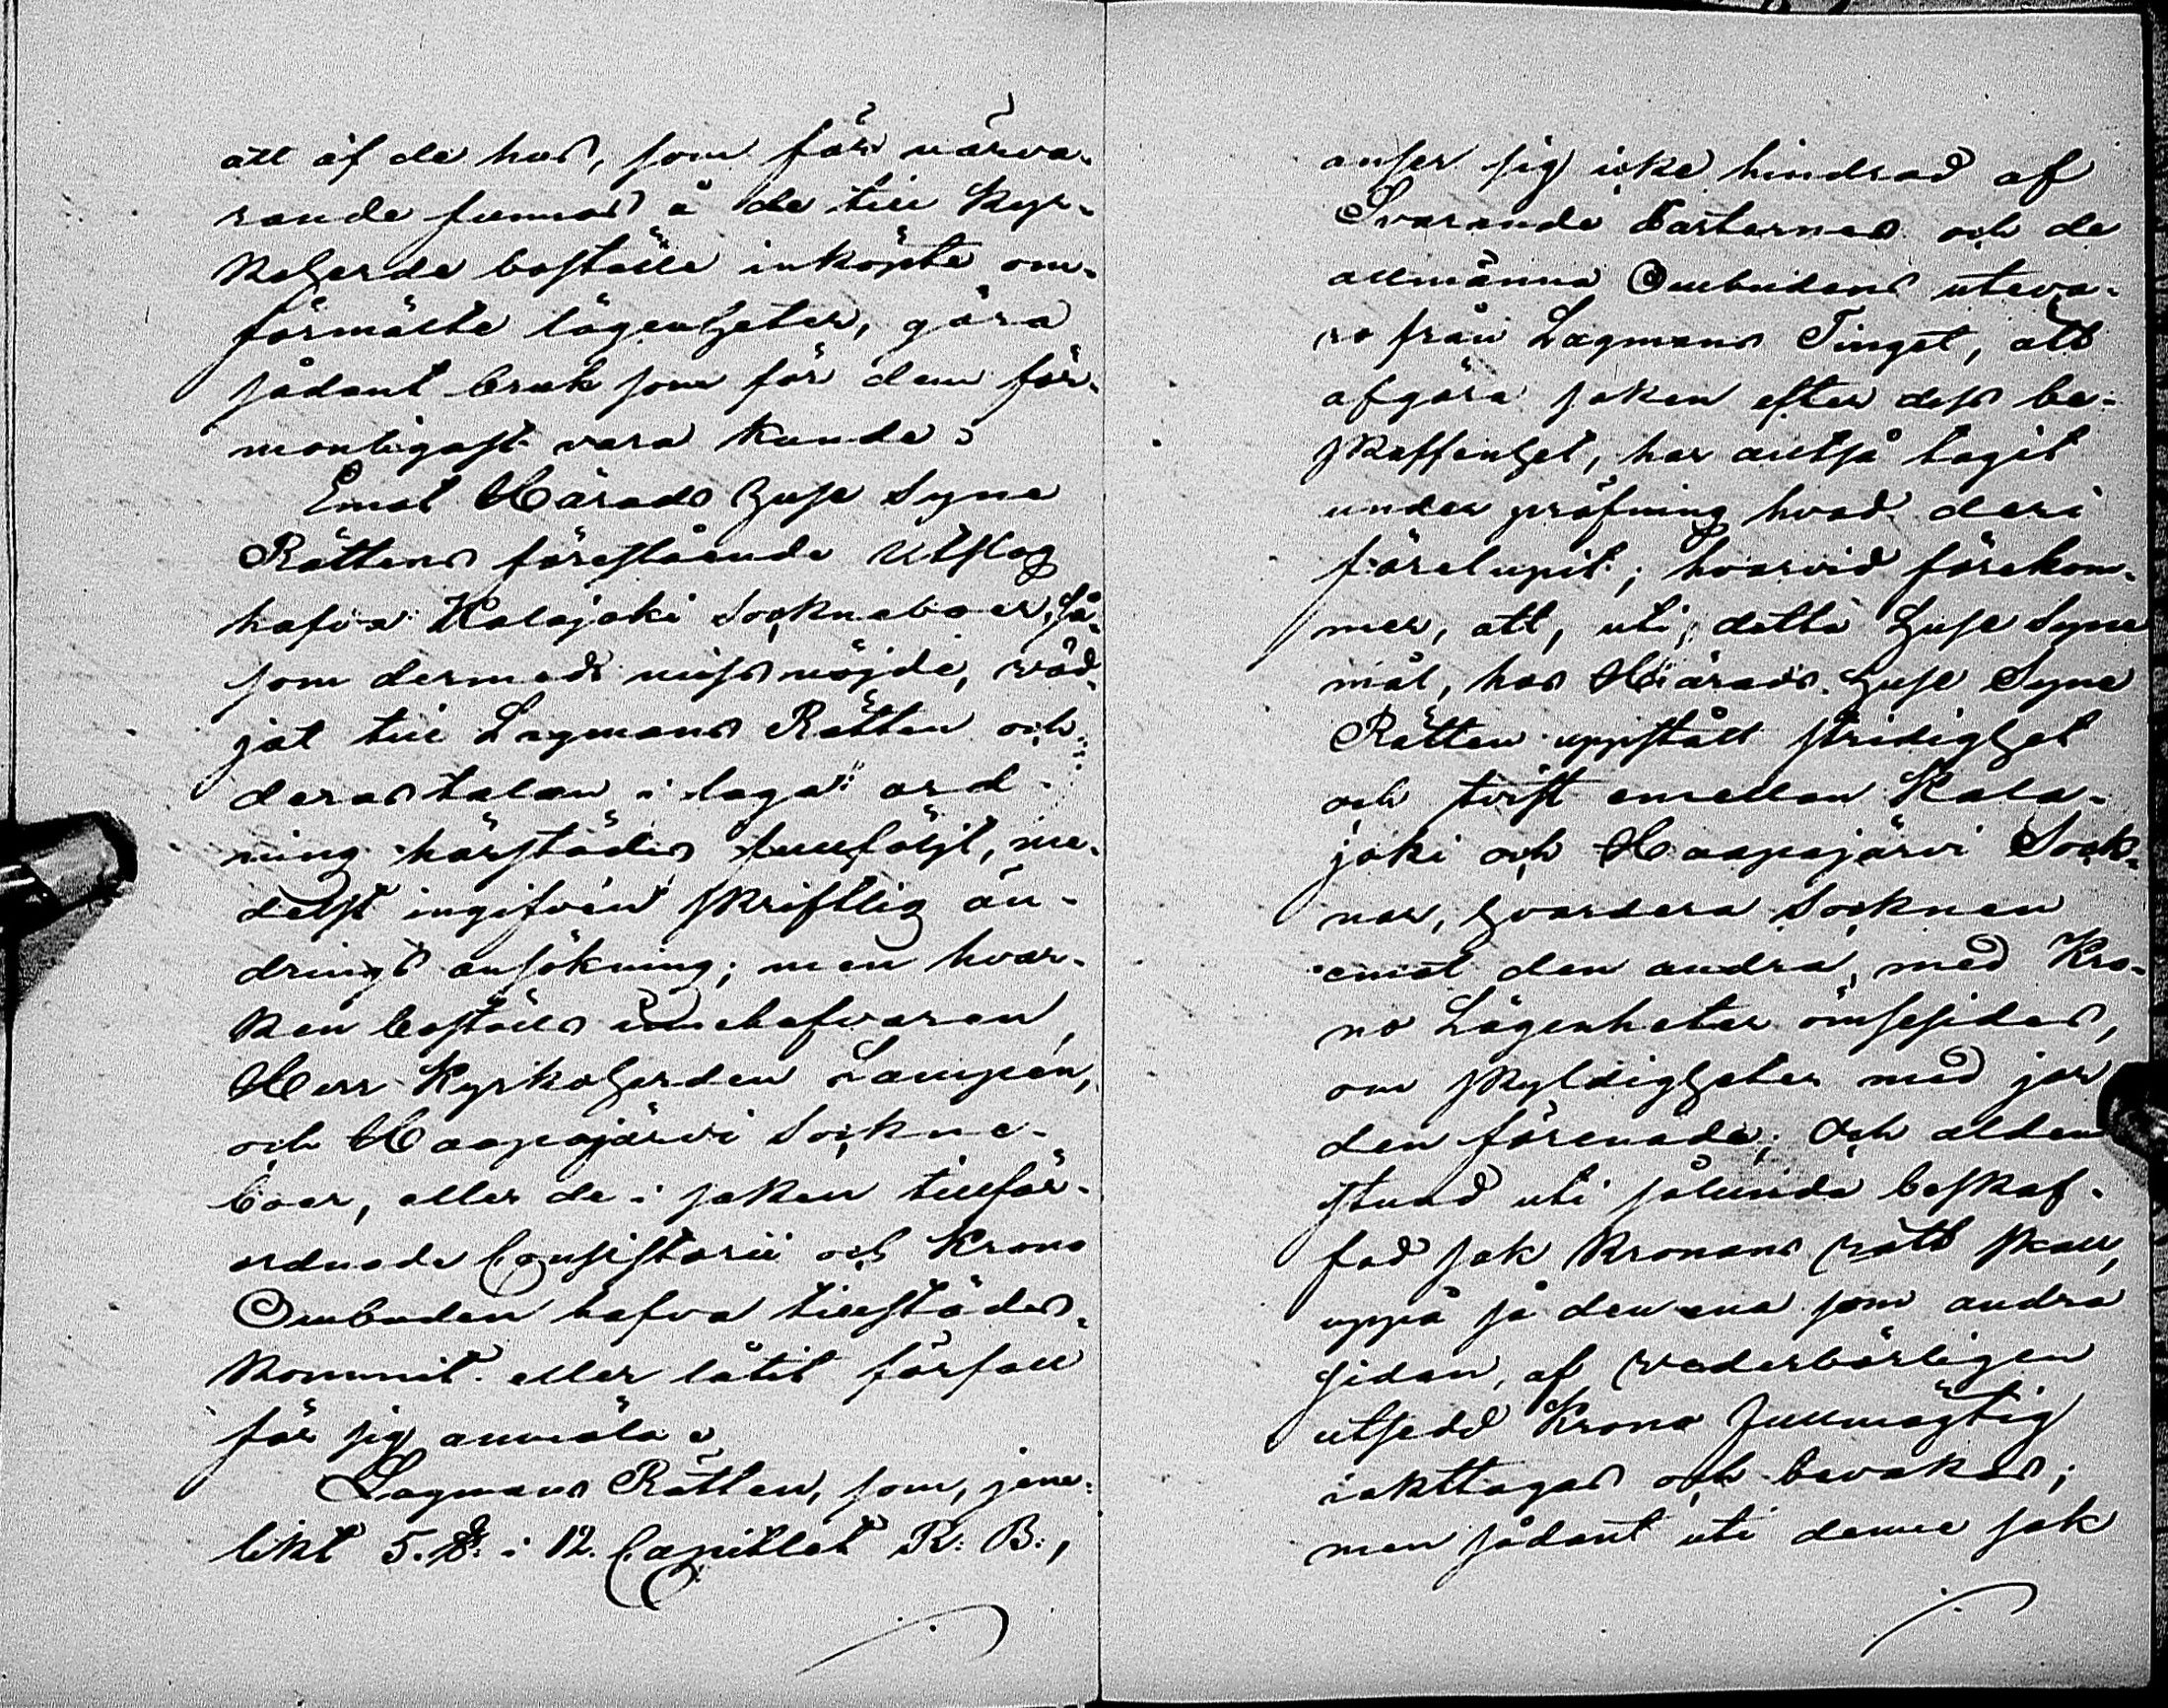 att af de hus, som för närva-
rande funnos å de till Kyr-
koherde boställe inköpta om-
förmälte lägenheter, göra
sådant bruk som för dem för-
monligast vara kunde.
Emot Härads Huse Syne
Rättens förestående Utslag
hafva Kalajoki Socknaboer, så-
som dermed missnöjde, väd-
jat till Lagmans Rätten och
deras talan i laga ord-
ning härstädes fullföljt, me-
delst ingifven skriftlig än-
drings ansökning; men hvar-
ken boställs innehafvaren,
Herr Kyrkoherden Lampén,
och Haapajärvi Sockne-
boer, eller de i saken tillför-
ordnade Consistorii och Krono
Ombuden hafva tillstädes-
kommit eller låtit förfall
för sig anmäla.
Lagmans Rätten, som, jem-
likt 5. §: i 12. Capitlet R: B:,
anser sig icke hindrad af
Svarande Parternes och de
allmänna Ombudens uteva-
ro från Lagmans Tinget, att
afgöra saken efter dess be-
skaffenhet, har altså tagit
under pröfning hvad deri
förelupit; hvarvid förekom-
mer, att, uti detta Huse Syne
mål, hos Härads Huse Syne
Rätten uppstått stridighet
och tvist emellan Kala-
joki och Haapajärvi Sock-
nar, hvardera Socknen
emot den andra, med Kro-
no Lägenheter ömsesides,
om skyldigheter med jor
den förenade; Och alden
stund uti sålunda beskaf-
fad sak Kronans rätt skall,
uppå så den ena som andra
sidan, af vederbörligen
utsedd Krono fullmägtig
iakttagas och bevakas;
men sådant uti denne sak